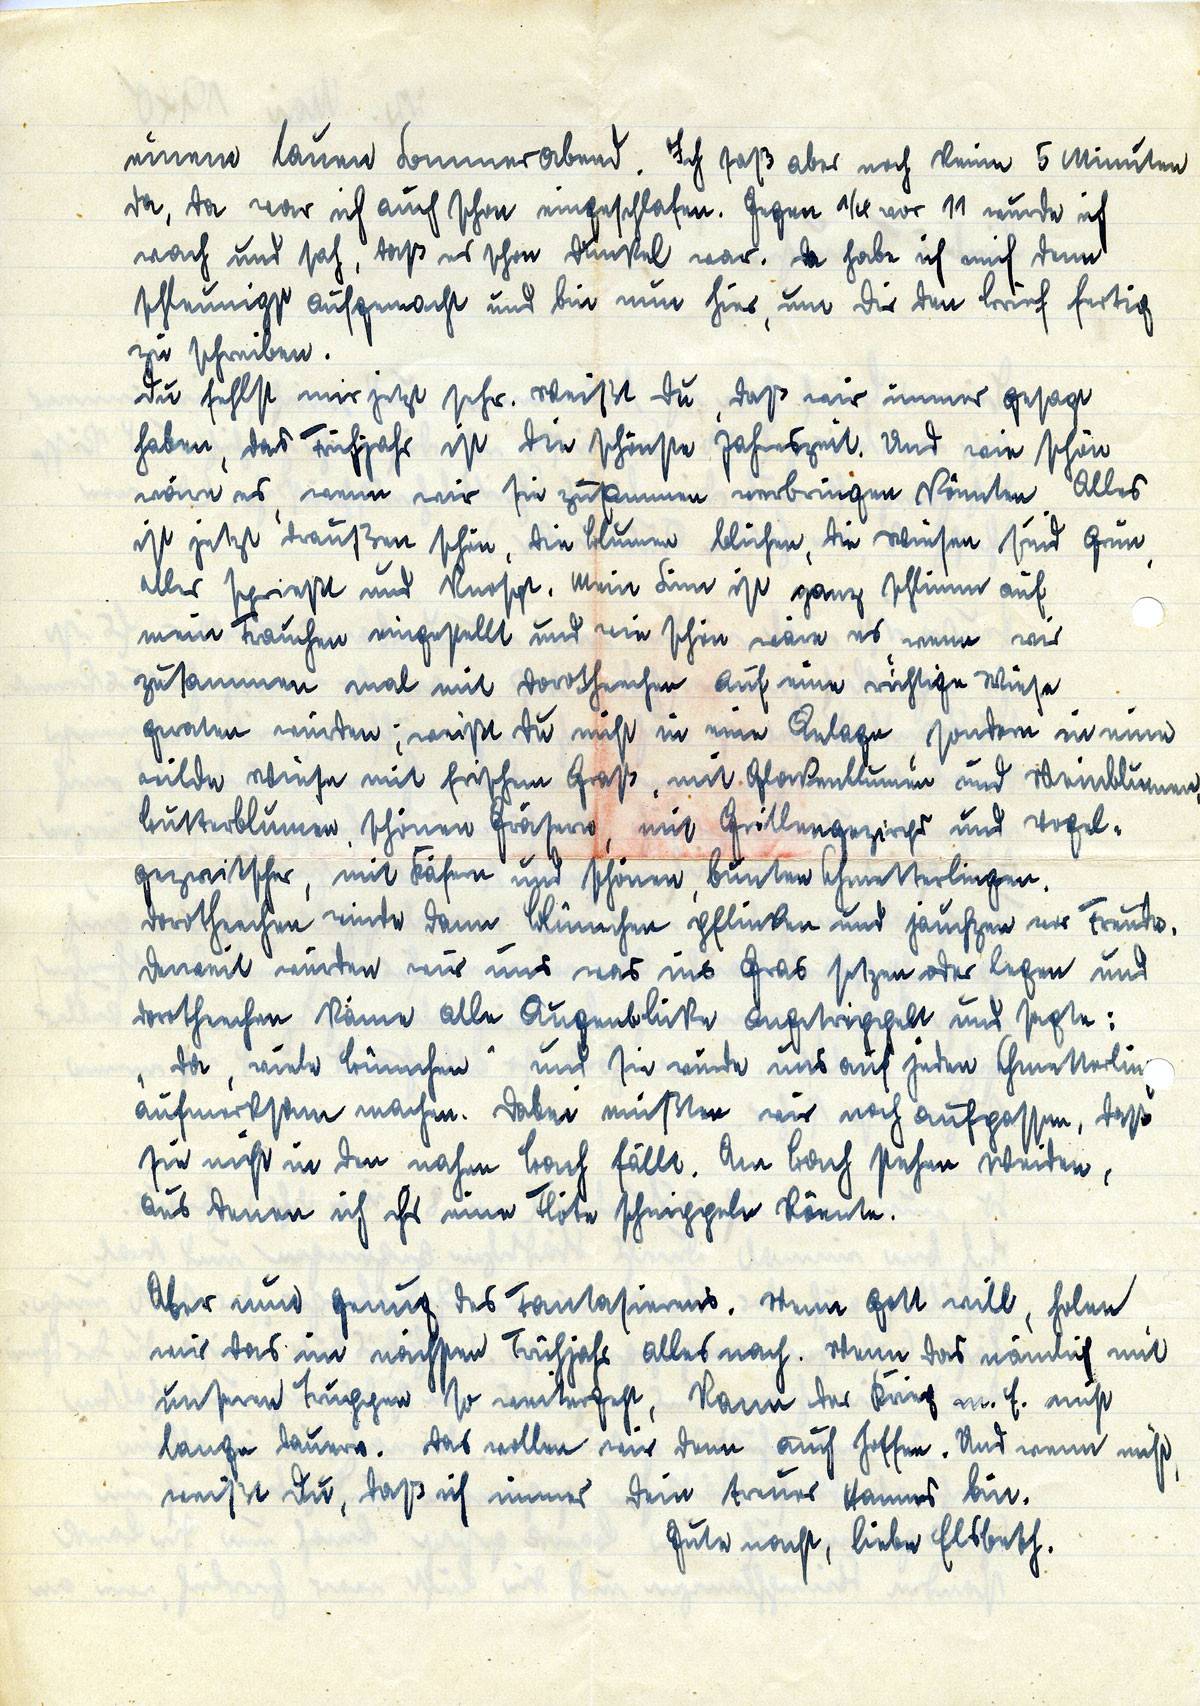 einem lauen Sommerabend. Ich saß aber noch keine 5 Minuten
da, da war ich auch schon eingeschlafen. Gegen 1/4 vor 11 wurde ich
wach und sah, daß es schon dunkel war. da habe ich mich denn
schleunigst aufgemacht und bin nun hier, um Dir den Brief fertig
zu schreiben.
Du fehlst mir jetzt sehr. Weißt Du, daß wir immer gesagt
haben, das Frühjahr ist die schönste Jahreszeit. Und wie schön
wäre es, wenn wir sie zusammen verbringen könnten. Alles
ist jetzt draußen schön, die Blumen blühen, die Wiesen sind grün,
alles sprießt und knospt. Mein Sinn ist ganz schlimm auf
mein Frauchen eingestellt und wie schön wäre es, wenn wir
zusammen mal mit Dorotheechen auf eine richtige Wiese
geraten würden; weißt Du nicht in eine Anlage, sondern in eine
wilde Wiese mit frischem Graß, mit Glockenblumen und Weinblumen,
Butterblumen, schönen Gräsern, mit Grillengezirps und Vogel-
gezwitscher, mit Käfern und schönen, bunten Schmetterlingen.
Dorotheechen würde dann Blümchen pflücken und jauchzen vor Freude.
Derweil würden wir uns was ins Gras setzen oder legen und
Dorotheechen käme alle Augenblicke angetrippelt und sagte:
„da, viele Bümchen" und sie würde uns auf jeden Schmetterling
aufmerksam machen. Dabei müßten wir noch aufpassen, daß
sie nicht in den nahen Bach fällt. Am Bach stehen Weiden,
aus denen ich ihr eine Flöte schnippeln könnte.
Aber nun genug des Fantasierens. Wenn Gott will, holen
wir das im nächsten Frühjahr alles nach. Wenn das nämlich mit
unseren Truppen so weitergeht, kann der Krieg m. E. nicht
lange dauern. Das wollen wir denn auch hoffen. Und wenn nicht,
weißt Du, daß ich immer Dein treuer Hannes bin.
Gute Nacht, liebe Elsbeth.